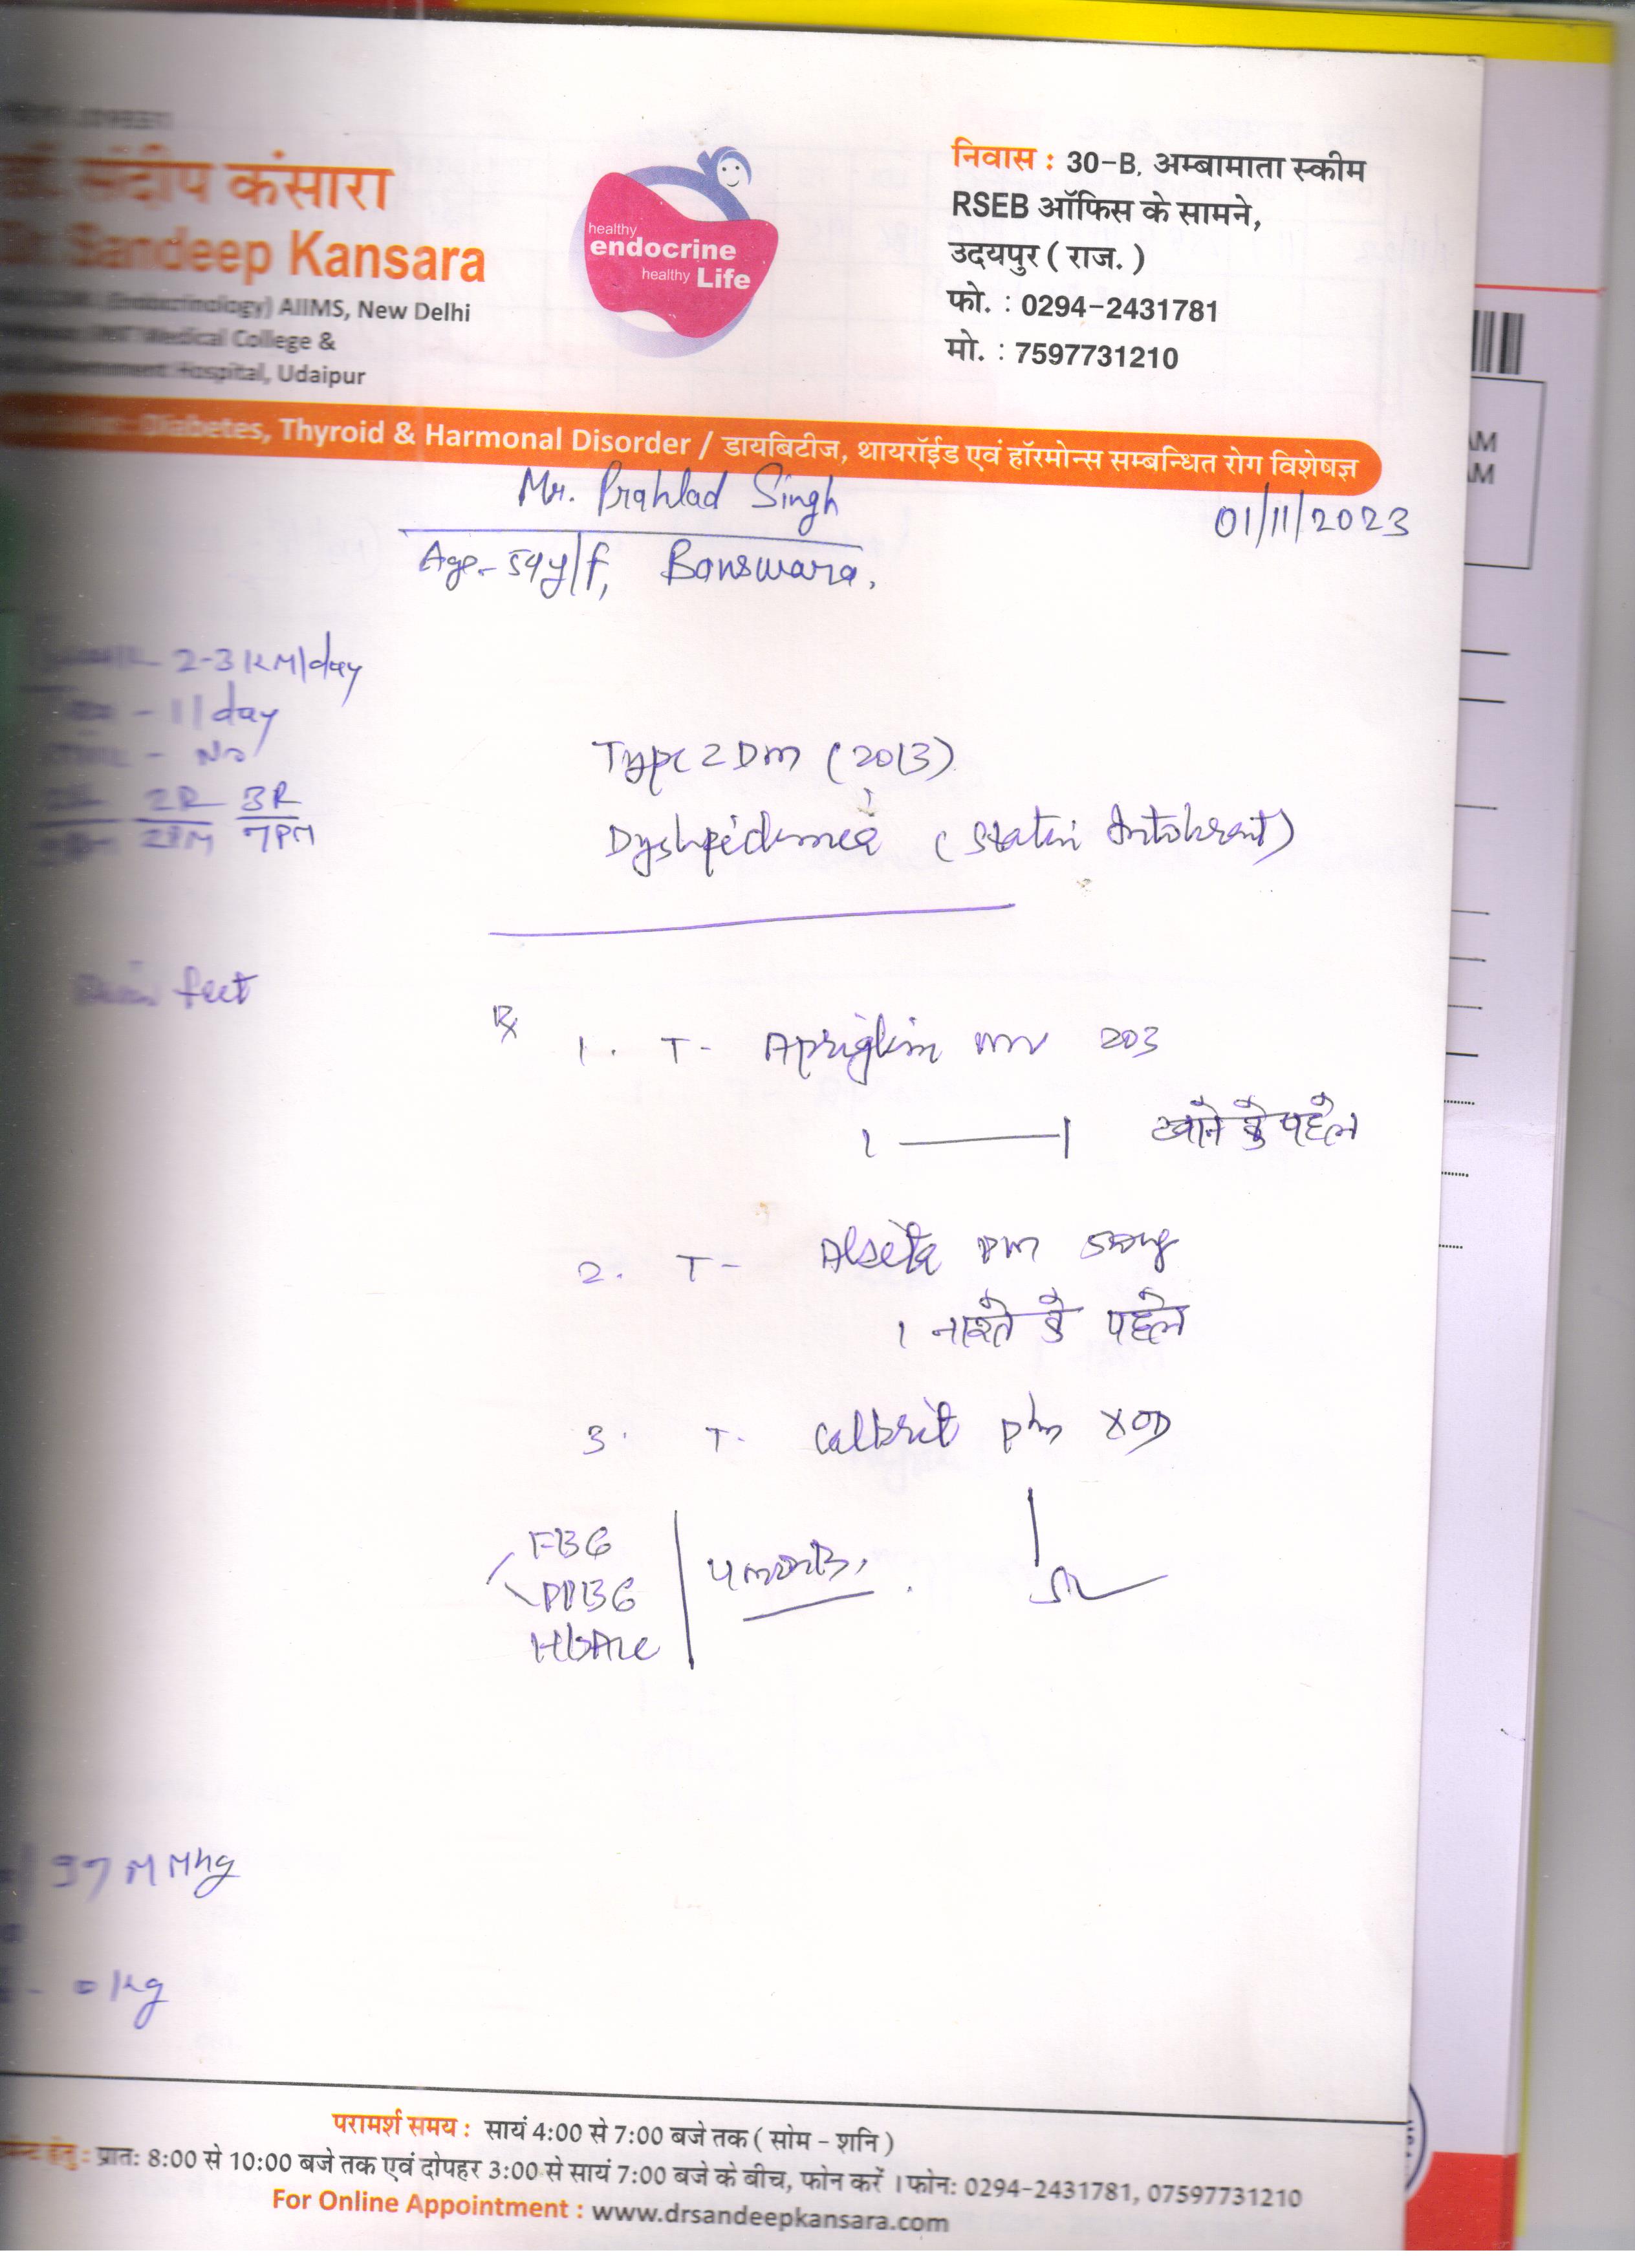 डॉ. संदीप कंसारा
Dr. Sandeep Kansara
(Endocrinology) AIIMS, New Delhi
Medical College &
Hospital, Udaipur
healthy
endocrine
healthy Life
निवास : 30-B, अम्बामाता स्कीम
RSEB ऑफिस के सामने,
उदयपुर ( राज. )
फो. : 0294-2431781
मो. : 7597731210
Diabetes, Thyroid & Harmonal Disorder / डायबिटीज, थायरॉईड एवं हॉरमोन्स सम्बन्धित रोग विशेषज्ञ
AM
AM
Mr. Prahlad Singh
01/11/2023
Age- 54y/f, Banswara.
2-3 KM/day
- 1/day
- No
2R 3R
2PM 7PM
Type 2 DM (2013)
Dyslipidemia (Statin Intolerant)
feet
Rx
1. T- Apriglim MV 203
1 —— 1 खाने के पहले
2. T- PM
1 नाश्ते के पहले
3. T- XOD
FBG
PPBG
HbA1c
4 months.
97 MMhg
Kg
परामर्श समय : सायं 4:00 से 7:00 बजे तक ( सोम - शनि )
हेतु : प्रात: 8:00 से 10:00 बजे तक एवं दोपहर 3:00 से सायं 7:00 बजे के बीच, फोन करें । फोन: 0294-2431781, 07597731210
For Online Appointment : www.drsandeepkansara.com